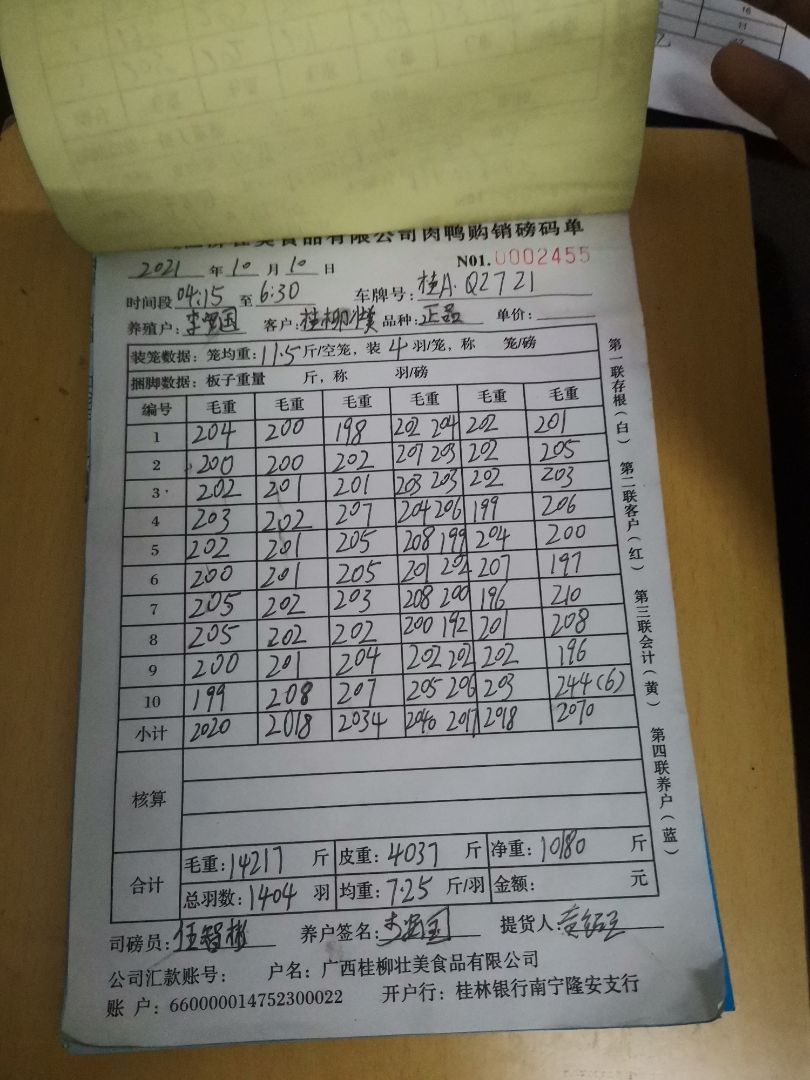 壮美食品有限公司肉鸭购销磅码单
2021 年 10 月 10 日 N01. 0002455
时间段 04:15 至 6:30 车牌号: 桂A·Q2721
养殖户: 客户: 桂柳壮美 品种: 正品 单价:
装笼数据: 笼均重: 11.5 斤/空笼, 装 4 羽/笼, 称 笼/磅
捆脚数据: 板子重量 斤, 称 羽/磅
编号 毛重 毛重 毛重 毛重 毛重 毛重
1 204 200 198 202 204 202 201
2 200 200 202 201 203 202 205
3 202 201 201 203 203 202 203
4 203 202 207 204 206 199 206
5 202 201 205 208 199 204 200
6 200 201 205 201 202 207 197
7 205 202 203 208 200 196 210
8 205 202 202 200 192 201 208
9 200 201 204 202 202 202 196
10 199 208 207 205 206 203 244(6)
小计 2020 2018 2034 2040 2017 2018 2070
核算
合计 毛重: 14217 斤 皮重: 4037 斤 净重: 10180 斤
总羽数: 1404 羽 均重: 7.25 斤/羽 金额: 元
司磅员: 伍智彬 养户签名: 提货人:
公司汇款账号: 户名: 广西桂柳壮美食品有限公司
账 户: 660000014752300022 开户行: 桂林银行南宁隆安支行
第一联存根(白) 第二联客户(红) 第三联会计(黄) 第四联养户(蓝)